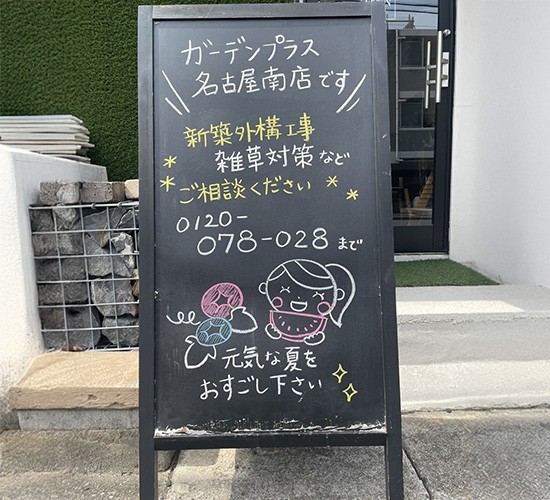 ガーデンプラス
名古屋南店です
新築外構工事
雑草対策など
ご相談ください
0120-
078-028まで
元気な夏を
おすごし下さい